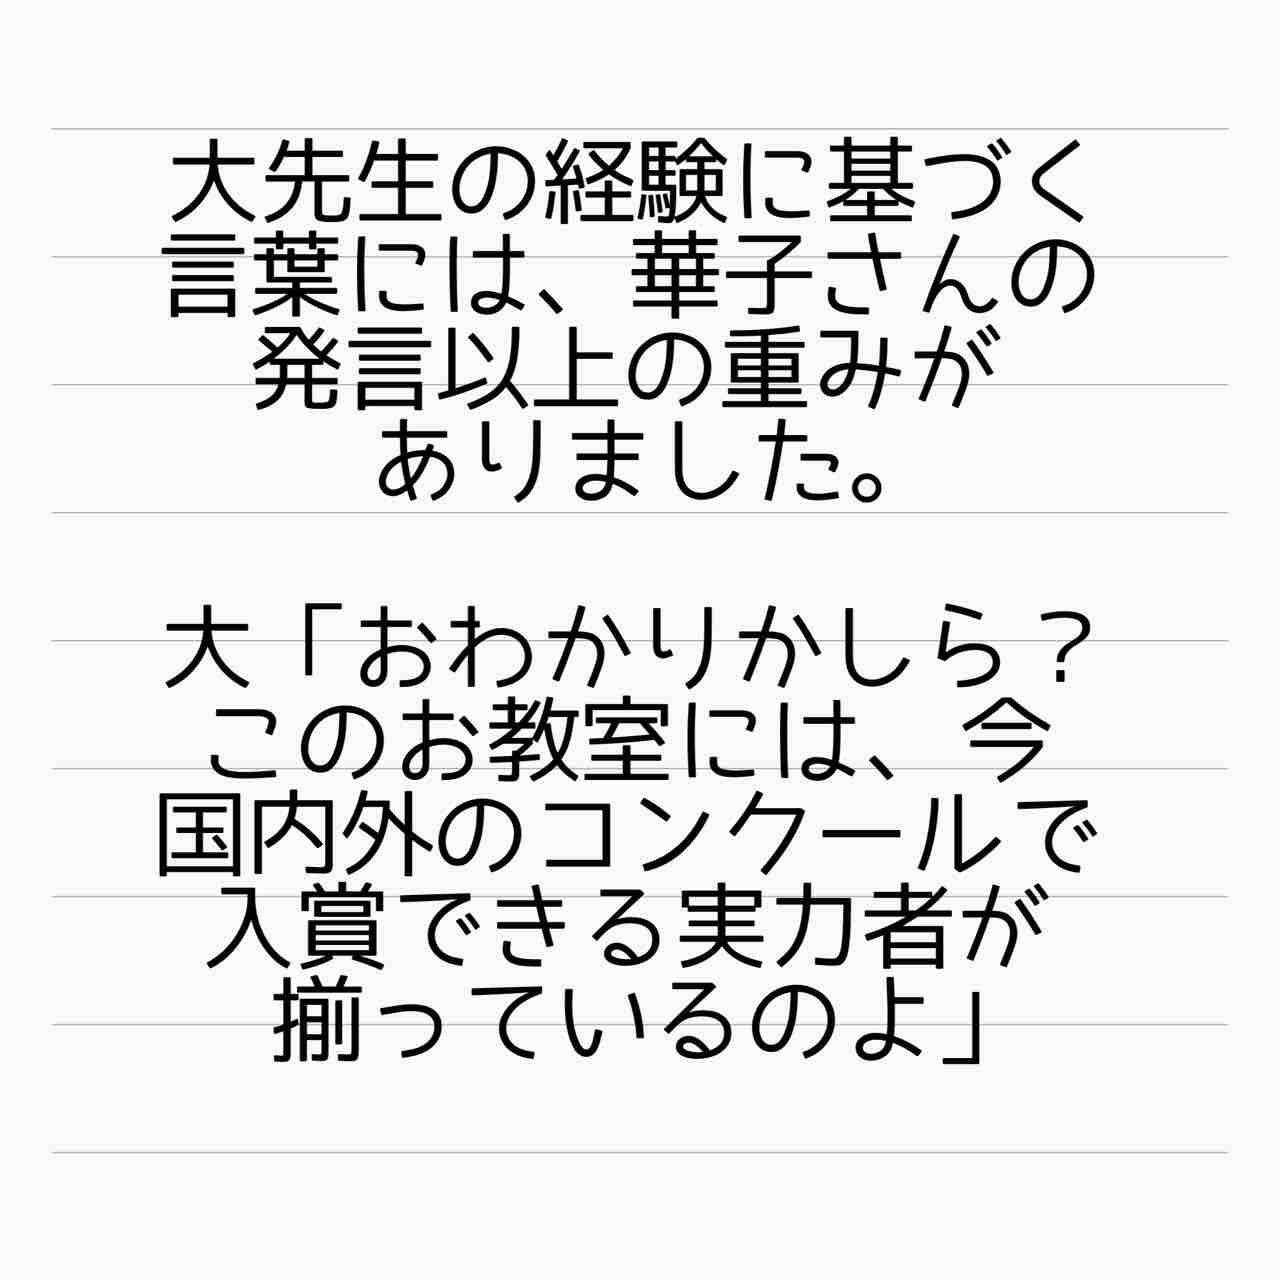 大先生の経験に基づく
言葉には、華子さんの
発言以上の重みが
ありました。
大「おわかりかしら？
このお教室には、今
国内外のコンクールで
入賞できる実力者が
揃っているのよ」